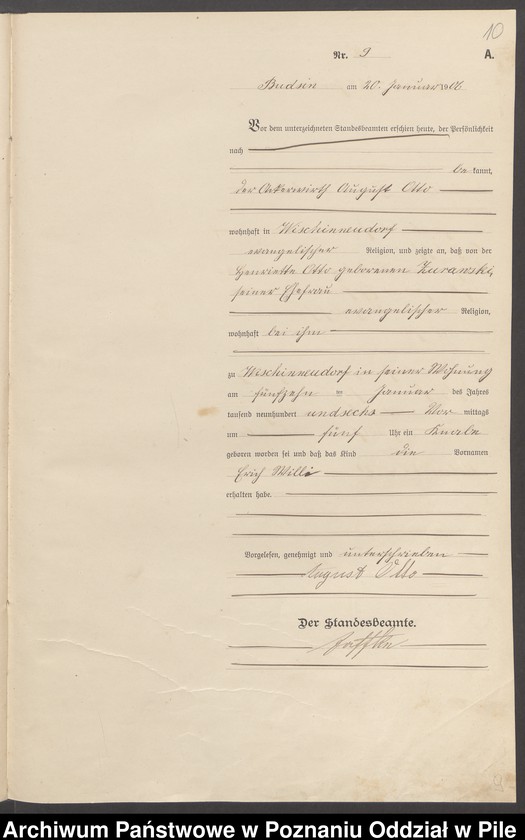 10
Nr. 9
A.
Budsin am 20. Januar 1906
Vor dem unterzeichneten Standesbeamten erschien heute, der Persönlichkeit
nach
be kannt,
der Ackerwirth August Otto
wohnhaft in Wischinneudorf
evangelischer Religion, und zeigte an, daß von der
Henriette Otto geborenen Zurawski,
seiner Ehefrau
evangelischer Religion,
wohnhaft bei ihm
zu Wischinneudorf in seiner Wohnung
am fünfzehn ten Januar des Jahres
tausend neunhundert undsechs Vor mittags
um fünf Uhr ein Knabe
geboren worden sei und daß das Kind die Vornamen
Erich Willi
erhalten habe.
Vorgelesen, genehmigt und unterschrieben
August Otto
Der Standesbeamte.
Archiwum Państwowe w Poznaniu Oddział w Pile